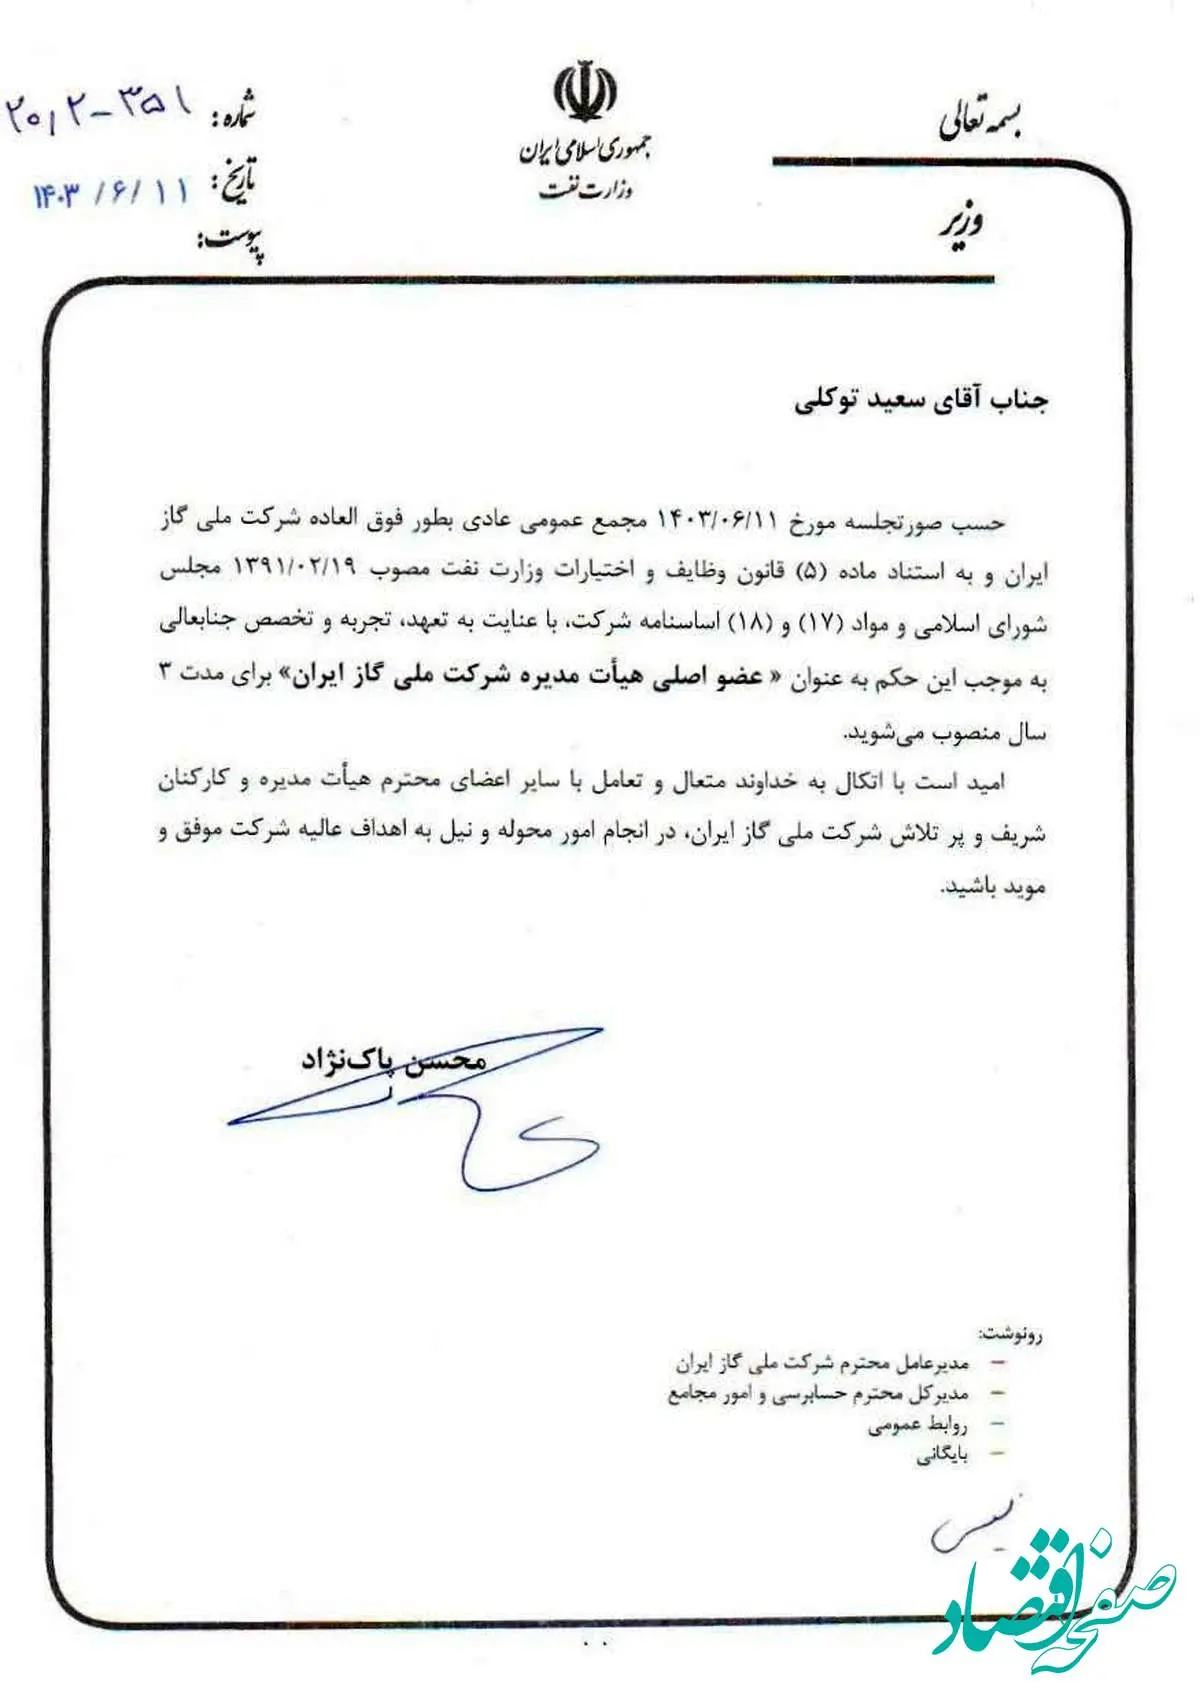 بسمه تعالی
جمهوری اسلامی ایران
وزارت نفت
وزیر
شماره: ۲۰/۲-۳۵۱
تاریخ: ۱۴۰۳/۶/۱۱
پیوست:
جناب آقای سعید توکلی
حسب صورتجلسه مورخ ۱۴۰۳/۰۶/۱۱ مجمع عمومی عادی بطور فوق العاده شرکت ملی گاز
ایران و به استناد ماده (۵) قانون وظایف و اختیارات وزارت نفت مصوب ۱۳۹۱/۰۲/۱۹ مجلس
شورای اسلامی و مواد (۱۷) و (۱۸) اساسنامه شرکت، با عنایت به تعهد، تجربه و تخصص جنابعالی
به موجب این حکم به عنوان « عضو اصلی هیأت مدیره شرکت ملی گاز ایران» برای مدت ۳
سال منصوب می‌شوید.
امید است با اتکال به خداوند متعال و تعامل با سایر اعضای محترم هیأت مدیره و کارکنان
شریف و پر تلاش شرکت ملی گاز ایران، در انجام امور محوله و نیل به اهداف عالیه شرکت موفق و
موید باشید.
محسن پاک‌نژاد
رونوشت:
– مدیرعامل محترم شرکت ملی گاز ایران
– مدیرکل محترم حسابرسی و امور مجامع
– روابط عمومی
– بایگانی
صفحه اقتصاد